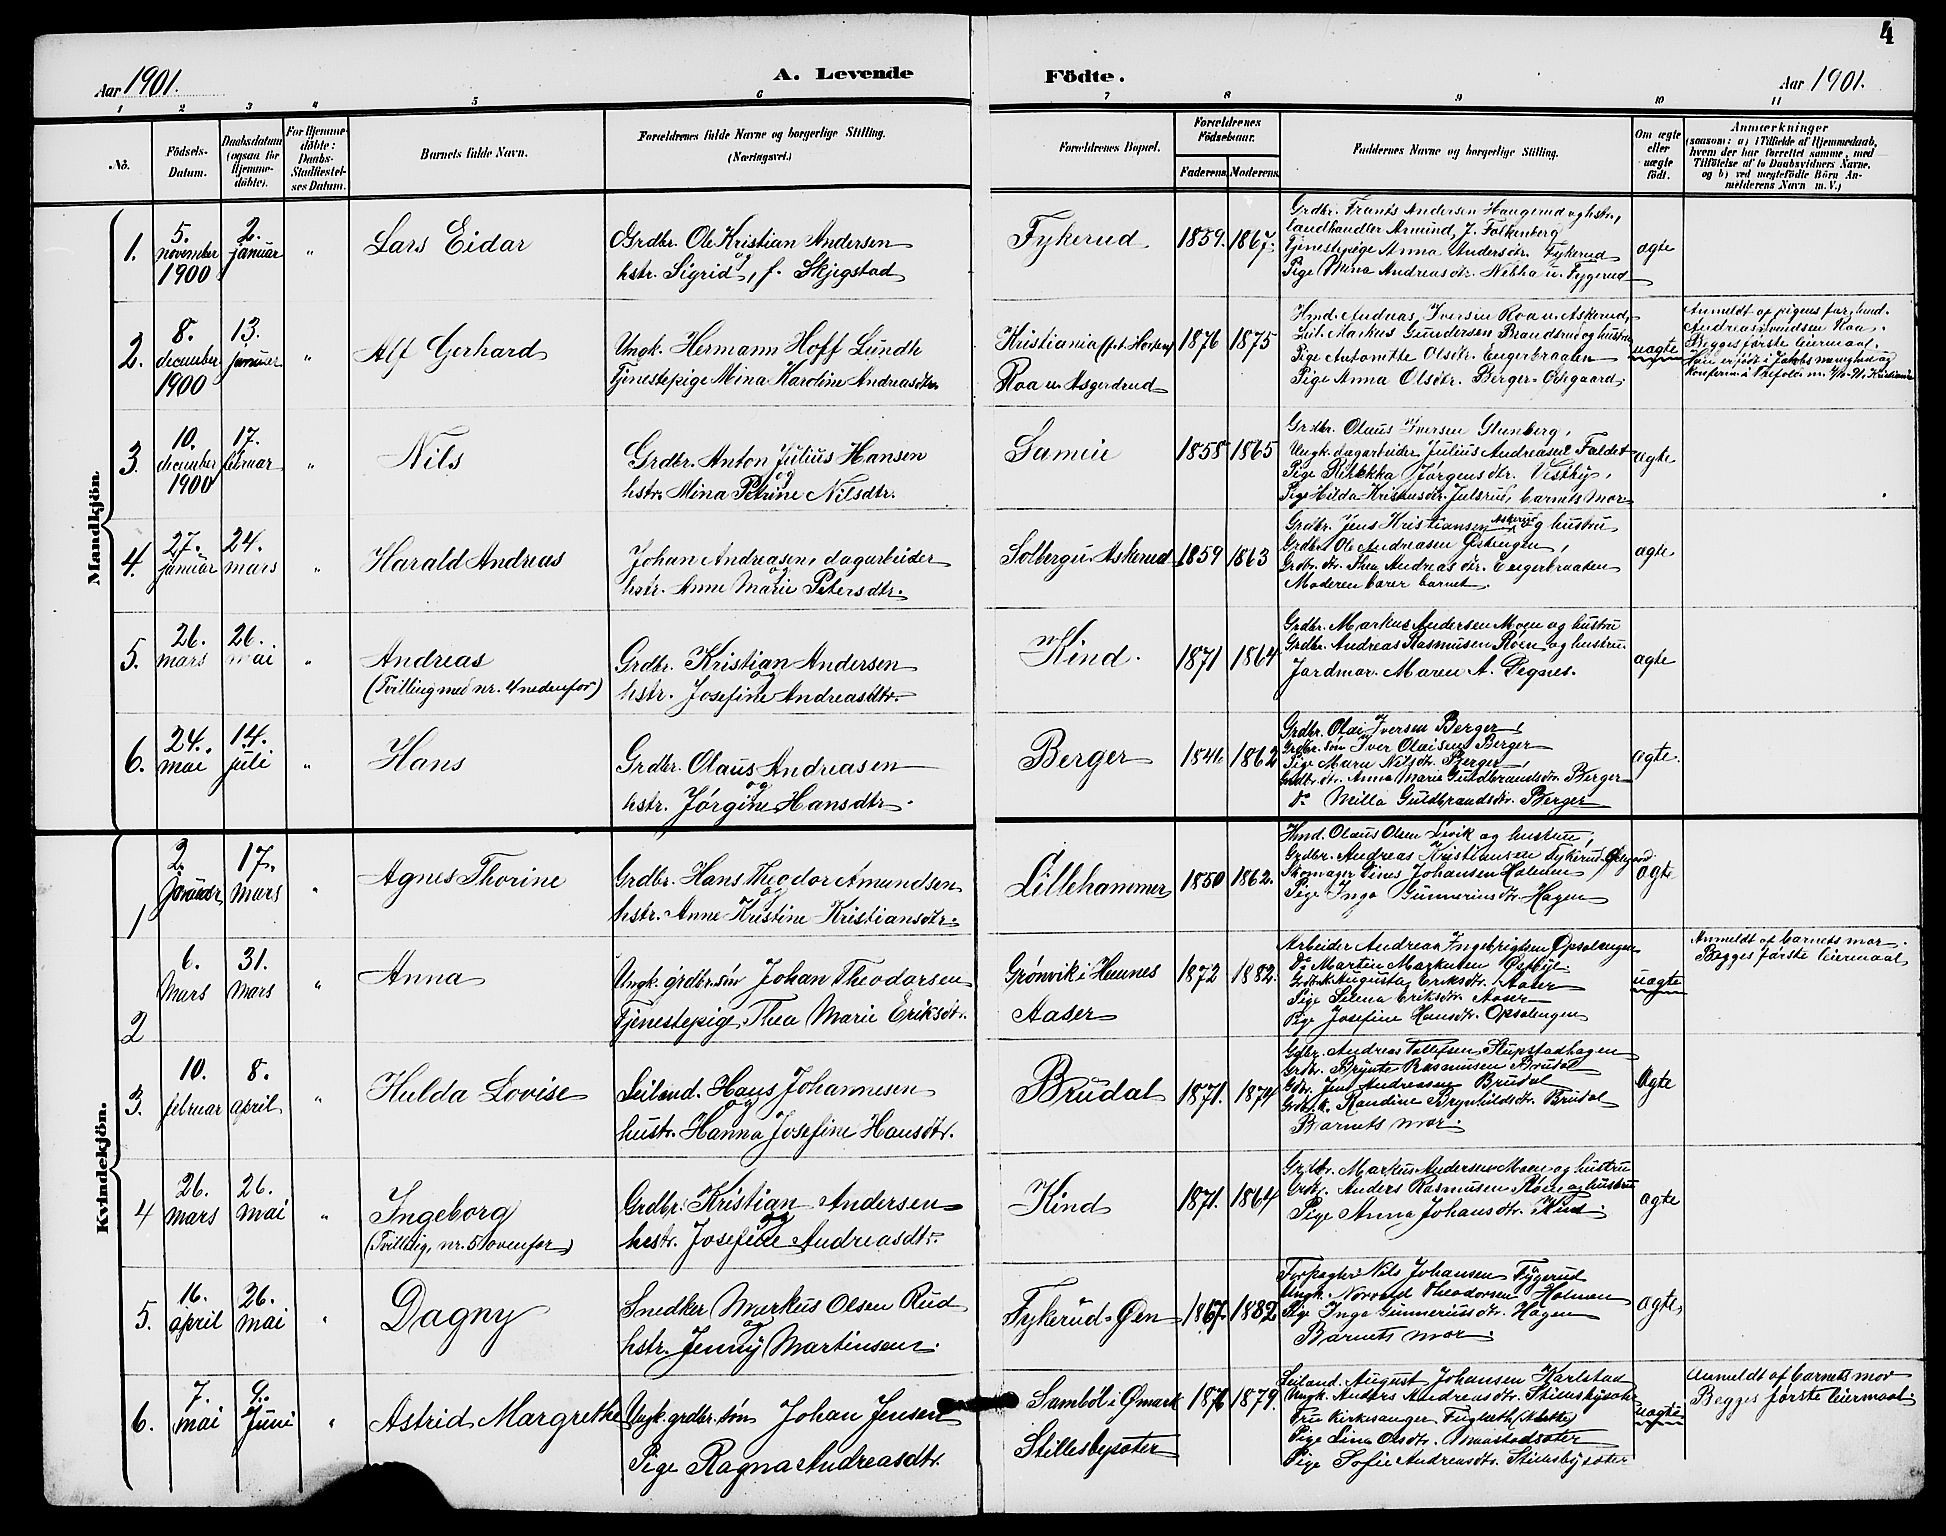 4
Aar 1901.
A. Levende Födte.
Aar 1901.
1 2 3 4 5 6 7 8 9 10 11
No.
Födsels-
Datum.
Daabsdatum
(ogsaa for
Hjemme-
döbte).
For Hjemme-
döbte:
Daabs-
Stadfæstel-
ses Datum.
Barnets fulde Navn.
Forældrenes fulde Navne og borgerlige Stilling.
(Næringsvei.)
Forældrenes Bopæl.
Forældrenes
Födselsaar.
Faderens.
Moderens.
Faddernes Navne og borgerlige Stilling.
Om ægte
eller
uægte
födt.
Anmærkninger
(saasom: a) i Tilfælde af Hjemmedaab,
hvem der har forrettet samme, med
Tilföielse af to Daabsvidners Navne,
og b) ved uægtefödte Börn An-
melderens Navn m. V.)
Mandkjön.
1.
5.
november
1900
2.
januar
"
Lars Eidar
Grdbr. Ole Kristian Andersen
og
hstr. Sigrid, f. Skjegstad
Fykerud
1859. 1867.
Grdbr. Frants Andersen Haugerud og hstr,
Landhandler Amund J. Falkenberg
Tjenestepige Anna Andersdtr. Fykerud
Pige Mina Andreasdtr. Nebba u. Fygerud
ægte
2.
8.
december
1900
13.
januar
"
Alf Gerhard
Ungk. Hermann Hoff Lundh
Tjenestepige Mina Karoline Andreasdtr.
Kristiania (p.t. Horten)
Roa u. Asgerdrud
1876 1875
Hmd. Andreas Iversen Roa u. Askerud,
Leil. Markus Gundersen Brandsrud og hustru
Pige Antonette Olsdtr. Engerbraaten
Pige Anna Olsdtr. Berger-Ødegaard.
uægte
Anmeldt af pigens far, hmd.
Andreas Roa.
Begges første leiermaal.
Han er født i Jakobs menighed og
3.
10.
december
1900
17.
februar
"
Nils
Grdbr. Anton Julius Hansen
og
hstr. Mina Petrine Nilsdtr.
1858 1865
Grdbr. Olaus Iversen Glenberg,
Ungk. dagarbeider Julius Andreasen Faldet
Pige Rebekka Jørgensdtr. Vestby,
Pige Hilda Kristiansdtr. Julsrud, barnets mor
ægte
4.
27.
januar
24.
mars
"
Harald Andreas
Johan Andreasen, dagarbeider
og
hstr. Anne Marie Petersdtr.
Solberg u. Askerud
1859 1863
Grdbr. Jens Kristiansen Askerud og hustru
Grdbr. Ole Andreasen Østengen,
Grdbr. dtr. Thea Andreasdtr. Engerbraaten
Moderen bærer barnet.
ægte
5.
26.
mars
26.
mai
"
Andreas
(Tvilling med nr. 4 nedenfor)
Grdbr. Kristian Andersen
og
hstr. Josefine Andreasdtr.
Kind.
1871 1864
Grdbr. Markus Andersen Moen og hustru
Grdbr. Andreas Rasmusen Roen og hustru.
Jordmor Maren A. Degnes.
ægte
6.
24.
mai
14.
juli
"
Hans
Grdbr. Olaus Andreasen
og
hstr. Jørgine Hansdtr.
Berger
1862
Grdbr. Olai Iversen Berger,
Grdbr. søn Iver Olaisen Berger
Pige Maren Nilsdtr. Berger,
Grdbr. dtr. Anna Marie Guldbrandsdtr. Berger
Do Milla Guldbrandsdtr. Berger
ægte.
Kvindekjön.
1
2
januar
17.
mars
"
Agnes Thorine
Grdbr. Hans Theodor Amundsen
og
hstr. Anne Kristine Kristiansdtr.
Lillehammer
1850 1862.
Hmd. Olaus Olsen Levik og hustru,
Grdbr. Andreas Kristiansen Fykerud-Ødegaard
Skomager Sines Johansen Holmen
Pige Inga Gunneriusdtr. Hagen
ægte
2
6.
mars
31.
mars
"
Anna
Ungk. grdbr.søn Johan Theodorsen
Tjenestepige Thea Marie Eriksdtr.
Grønvik i Hemnes
Aaser
1872 1882.
Arbeider Andreas Ingebrigtsen Opsalengen
Do Martin Markusen Østbye.
Grdbr.k. Augusta Eriksdtr. Aaser
Pige Selma Eriksdtr. Aaser
Pige Josefine Hansdtr. Opsalengen
uægte
Anmeldt af barnets mor.
Begges første leiermaal
3.
10.
februar
8.
april
"
Hulda Lovise
Leilend. Hans Johannesen
og
hustr. Hanna Josefine Hansdtr.
Brudal
1871. 1874
Gdbr. Andreas Tollefsen Slupstadhagen
Grdbr. Brynte Rasmusen Brudal
Gdbr. Jens Andreasen Brudal
Grdbr.k. Randine Brynhildsdtr. Brudal
Barnets mor.
ægte
4
26.
mars
26.
mai
"
Ingeborg
(Tvilling, nr. 5 ovenfor)
Grdbr. Kristian Andersen
og
hstr. Josefine Andreasdtr.
Kind
1871. 1864
Grdbr. Markus Andersen Moen og hustru
Grdbr. Anders Rasmusen Roen og hustru
Pige Anna Johansdtr. Kind.
ægte
5.
16.
april
26.
mai
"
Dagny
Snedker Markus Olsen Rud
og
hstr. Jenny Martinsen.
Fykerud-Øen
1867. 1882
Forpagter Nils Johansen Fygerud
Ungk. Norvald Theodorsen Holmen
Pige Inga Gunneriusdtr. Hagen
Barnets mor.
ægte,
6.
7.
mai
9.
juni
"
Astrid Margrethe
Ungk. grdbr. søn Johan Jensen
Pige Ragna Andreasdtr.
Sambøl i Ømark
Stillesbysæter
1876 1879.
Leiland. August Johansen Karlstad
Ungk. Anders Andreasdtr. Stillesbysæter
Fru Kirkesanger Fugleth
Pige Lina Olsdtr. Smaastadsæter
Pige Sofie Andreasdtr. Stillesbysæter
uægte
Anmeldt af barnets mor
Begges første leiermaal.